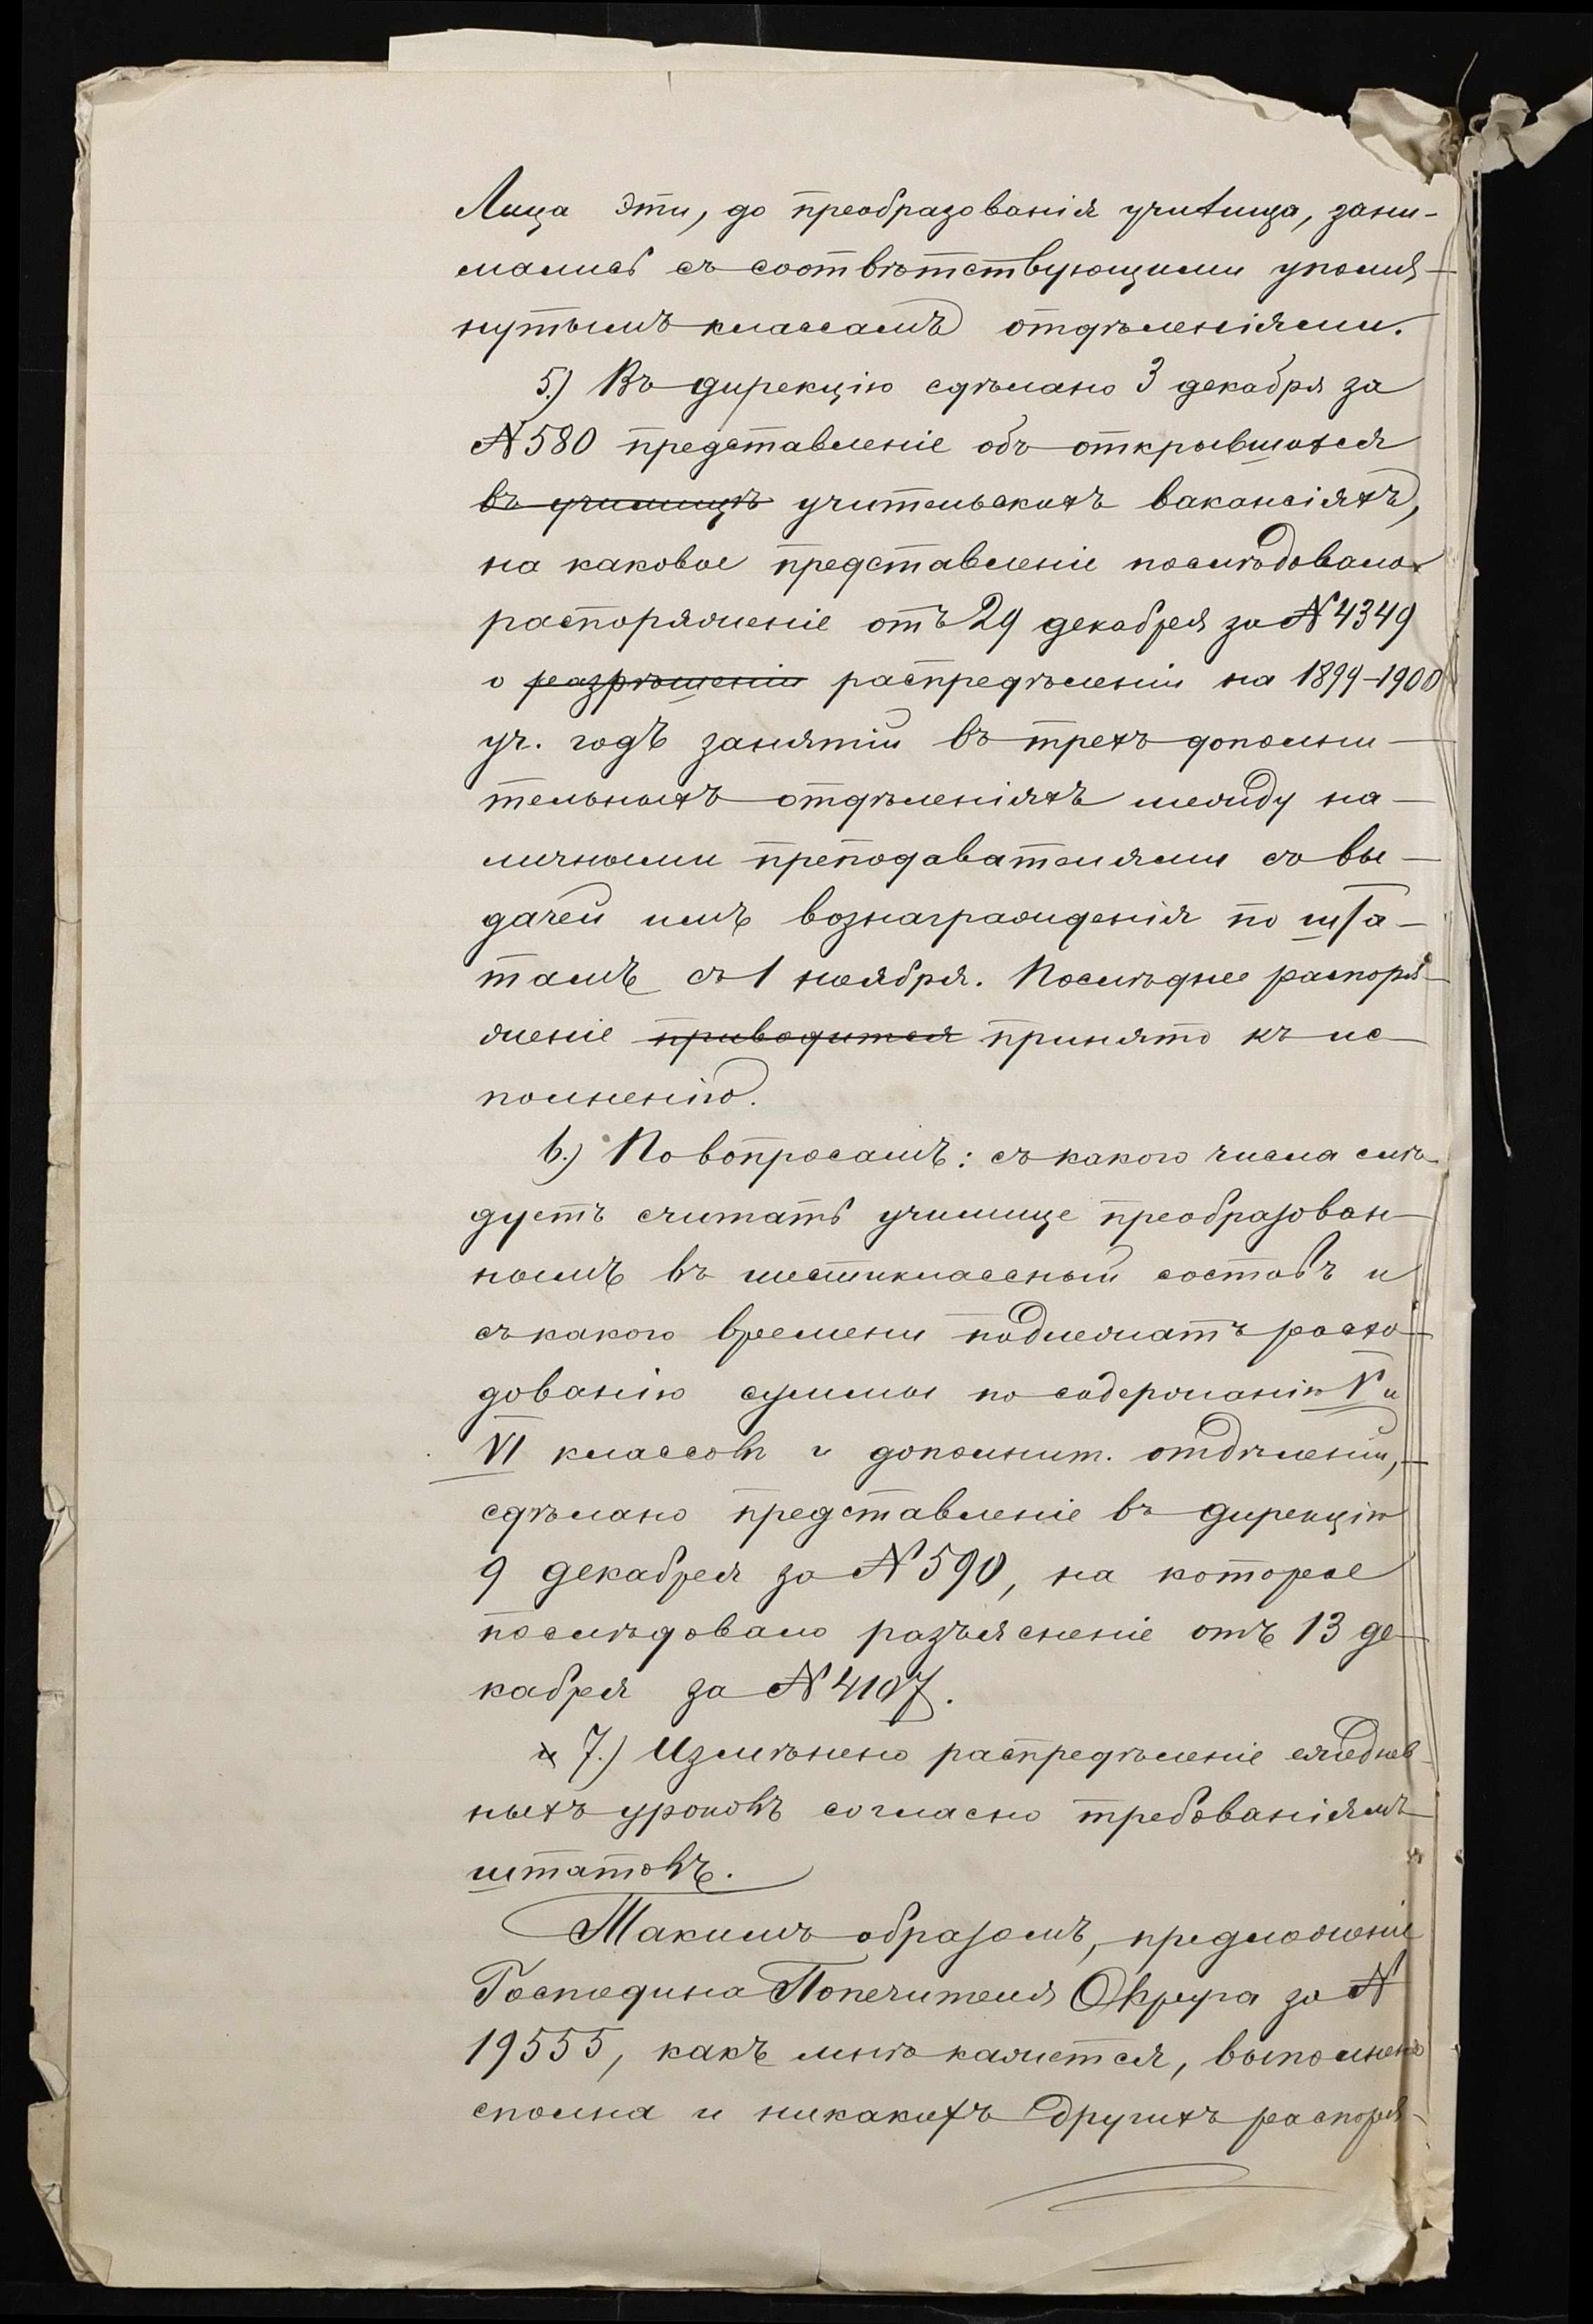 Лица эти, до преобразованія училища, зани-
мались съ соотвѣтствующими упомя-
нутымъ классамъ отдѣленіями.
5.) Въ дирекцію сдѣлано 3 декабря за
№ 580 представленіе объ открывшихся
въ училищѣ учительскихъ вакансіяхъ,
на каковое представленіе послѣдовало
распоряженіе отъ 29 декабря за № 4349
о разрѣшеніи распредѣленіи на 1899–1900
уч. годъ занятій въ трехъ дополни-
тельныхъ отдѣленіяхъ между на-
личными преподавателями съ вы-
дачей имъ вознагражденія по шта-
тамъ съ 1 ноября. Послѣднее распоря-
женіе приводится принято къ ис-
полненію.
6.) По вопросамъ: съ какого числа слѣ-
дуетъ считать училище преобразован-
нымъ въ шестиклассный составъ и
съ какого времени подлежатъ расхо-
дованію суммы по содержанію V и
VI классовъ и дополнит. отдѣленій,
сдѣлано представленіе въ дирекцію
9 декабря за № 590, на которое
послѣдовало разъясненіе отъ 13 де-
кабря за № 4107.
и 7.) Измѣнено распредѣленіе ежеднев-
ныхъ уроковъ согласно требованіямъ
штатовъ.
Такимъ образомъ, предложеніе
Господина Попечителя Округа за №
19555, какъ мнѣ кажется, выполнено
сполна и никакихъ другихъ распоря-